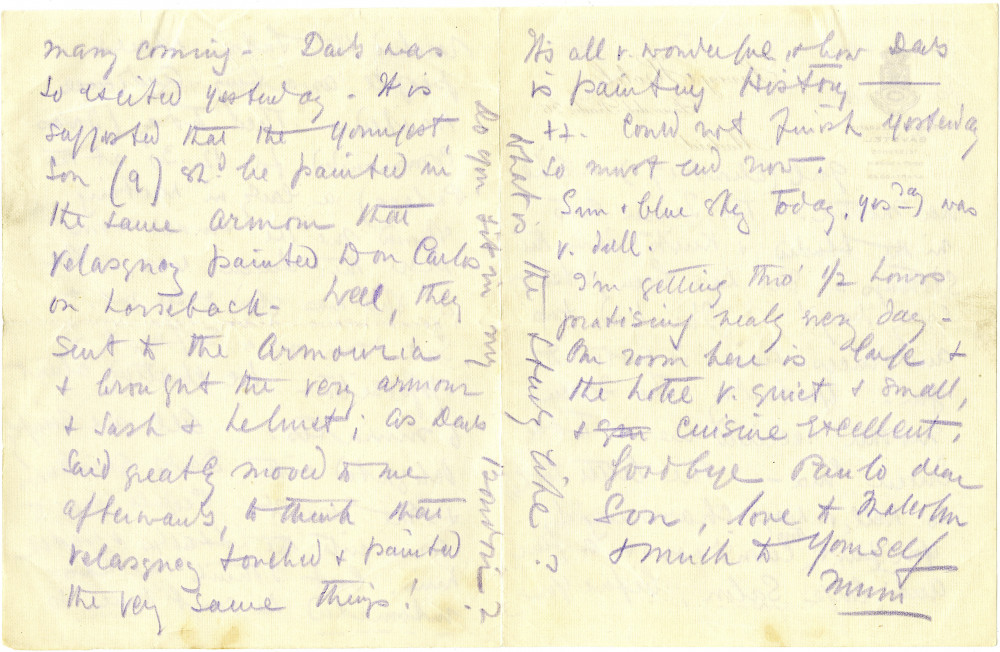 many coming - Dads was
so excited yesterday - It is
supposed that the youngest
son (9) shd be painted in
the same armour that
Velasquez painted Don Carlos
on horseback - Well, they
sent to the Armouria
& brought the very armour
& sash & helmet; as Dads
said greatly moved to me
afterwards, to think that
Velasquez touched & painted
the very same things!
Do you sit in my boudoir?
What is the study like?
It's all v. wonderful, & how Dads
is painting History
Could not finish yesterday
so must end now.
Sun & blue sky today. yesday was
v. dull.
I'm getting thro' 1/2 hours
practising nealy every day -
Our room here is large &
the hotel v. quiet & small,
& cuisine excellent.
Goodbye Paulo dear
Son, love to Malcolm
& much to yourself
Mum